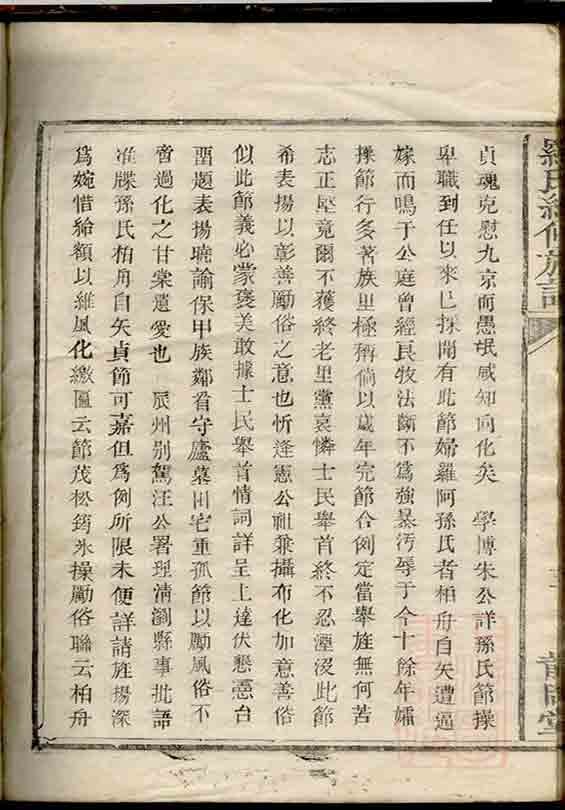 羅氏續修族譜
貞魂克慰九京而愚氓咸知向化矣　學博朱公詳孫氏節操
卑職到任以來已採聞有此節婦羅阿孫氏者柏舟自矢遭逼
嫁而鳴于公庭曾經良牧法斷不爲強暴汚辱于今十餘年孀
操節行多著族里極稱倘以歲年完節合例定當舉旌無何苦
志正堅竟爾不獲終老里黨哀憐士民舉首終不忍湮沒此節
希表揚以彰善勵俗之意也忻逢憲公祖兼攝布化加意善俗
似此節義必蒙褒美敢據士民舉首情詞詳呈上達伏懇憲台
畱題表揚曉諭保甲族鄰看守廬墓田宅重孤節以勵風俗不
啻過化之甘棠遺愛也　辰州别駕汪公署理清瀏縣事批語
准牒孫氏柏舟自矢貞節可嘉但爲例所限未便詳請旌揚深
爲婉惜給額以維風化繳匾云節茂松筠氷操勵俗聯云柏舟